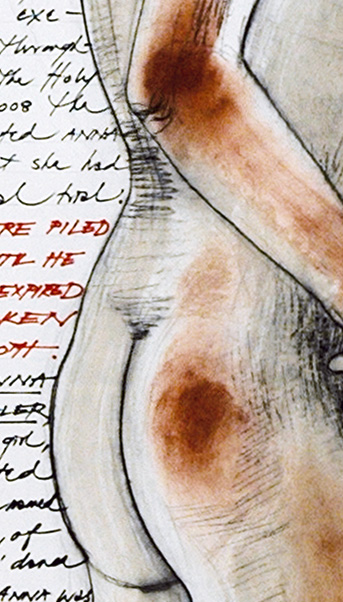 exe-
through
the Holy
008 the
ted ANNA
t she had
al trial.
RE PILED
TIL HE
EXPIRED
KEN
OTH.
NNA
LER,
girl,
ted
named
, of
ANNA WAS